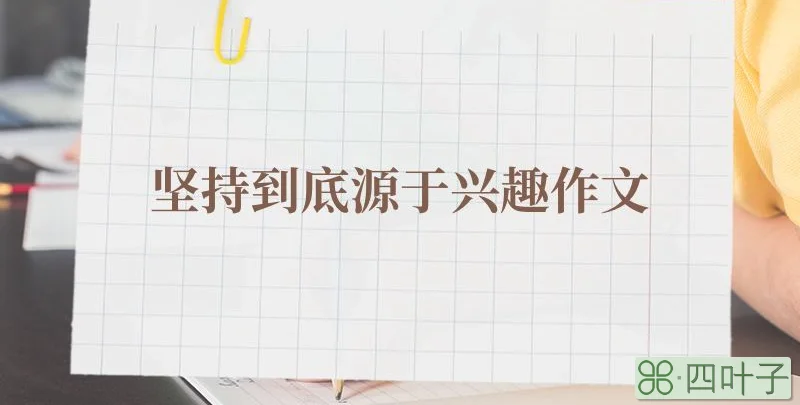 坚持到底源于兴趣作文
四叶子